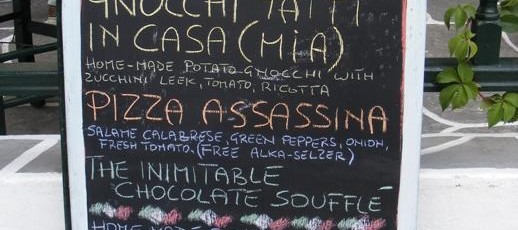 GNOCCHI FATTI
IN CASA (MIA)
HOME-MADE POTATO GNOCCHI WITH
ZUCCHINI LEEK, TOMATO, RICOTTA
PIZZA ASSASSINA
SALAME CALABRESE, GREEN PEPPERS, ONION,
FRESH TOMATO. (FREE ALKA-SELZER)
THE INIMITABLE
CHOCOLATE SOUFFLÉ
HOME MADE